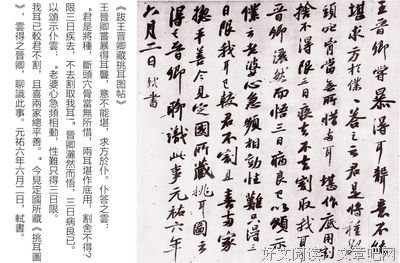 王晉卿嘗暴得耳聾意不能
堪求方於僕僕答之云君是將種斷
頭穴骨當無所惜兩耳堪作底用割
捨不得限三日疾去不去割取我耳
晉卿灑然而悟三日病良已以頌示
僕云老婆心急頻相勸性難只得三
日限我耳已較君不割且喜兩家
總平善今見定國所藏挑耳圖云
得之晉卿聊識此事元祐六年
六月二日軾書
《跋王晉卿藏挑耳图帖》
王晉卿嘗暴得耳聾，意不能堪，求方於仆。仆答之雲：
"君是將種，斷頭穴骨當無所惜，兩耳堪作底用，割舍不得？
限三日疾去，不去割取我耳。"晉卿灑然而悟，三日病良已。
以頌示仆雲："老婆心急頻相勸，性難只得三日限。
我耳已較君不割，且喜兩家總平善。"今見定國所藏《挑耳圖
》，雲得之晉卿，聊識此事。元祐六年六月二日，軾書。
好文阅读 文章吧网